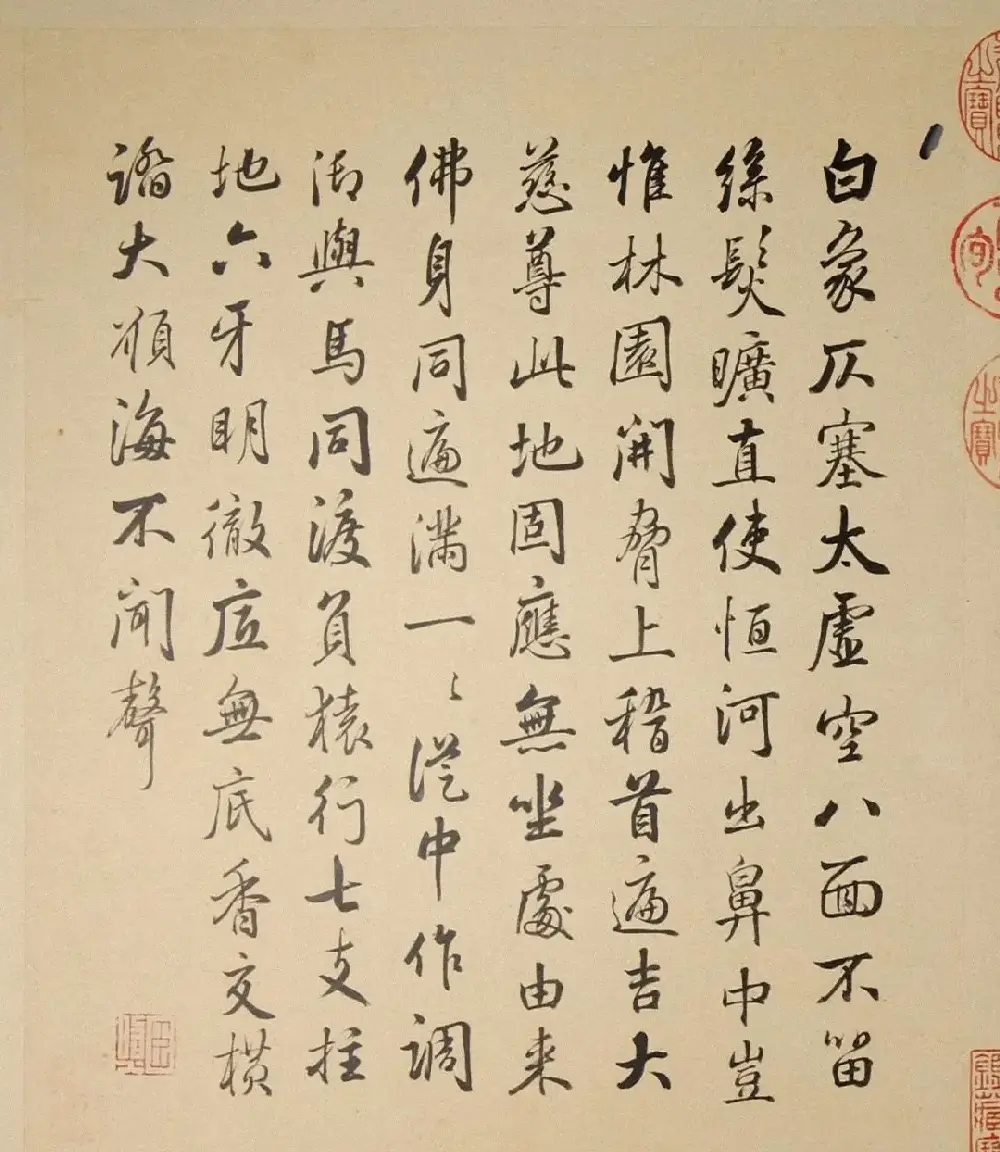 白象仄塞太虛空八面不留
絲髮曠直使恒河出鼻中豈
惟林園開脅上稽首遍吉大
慈尊此地固應無坐處由來
佛身同遍滿一〻從中作調
御與馬同渡負猿行七支拄
地六牙明徹底無底香交橫
譫大順海不聞聲